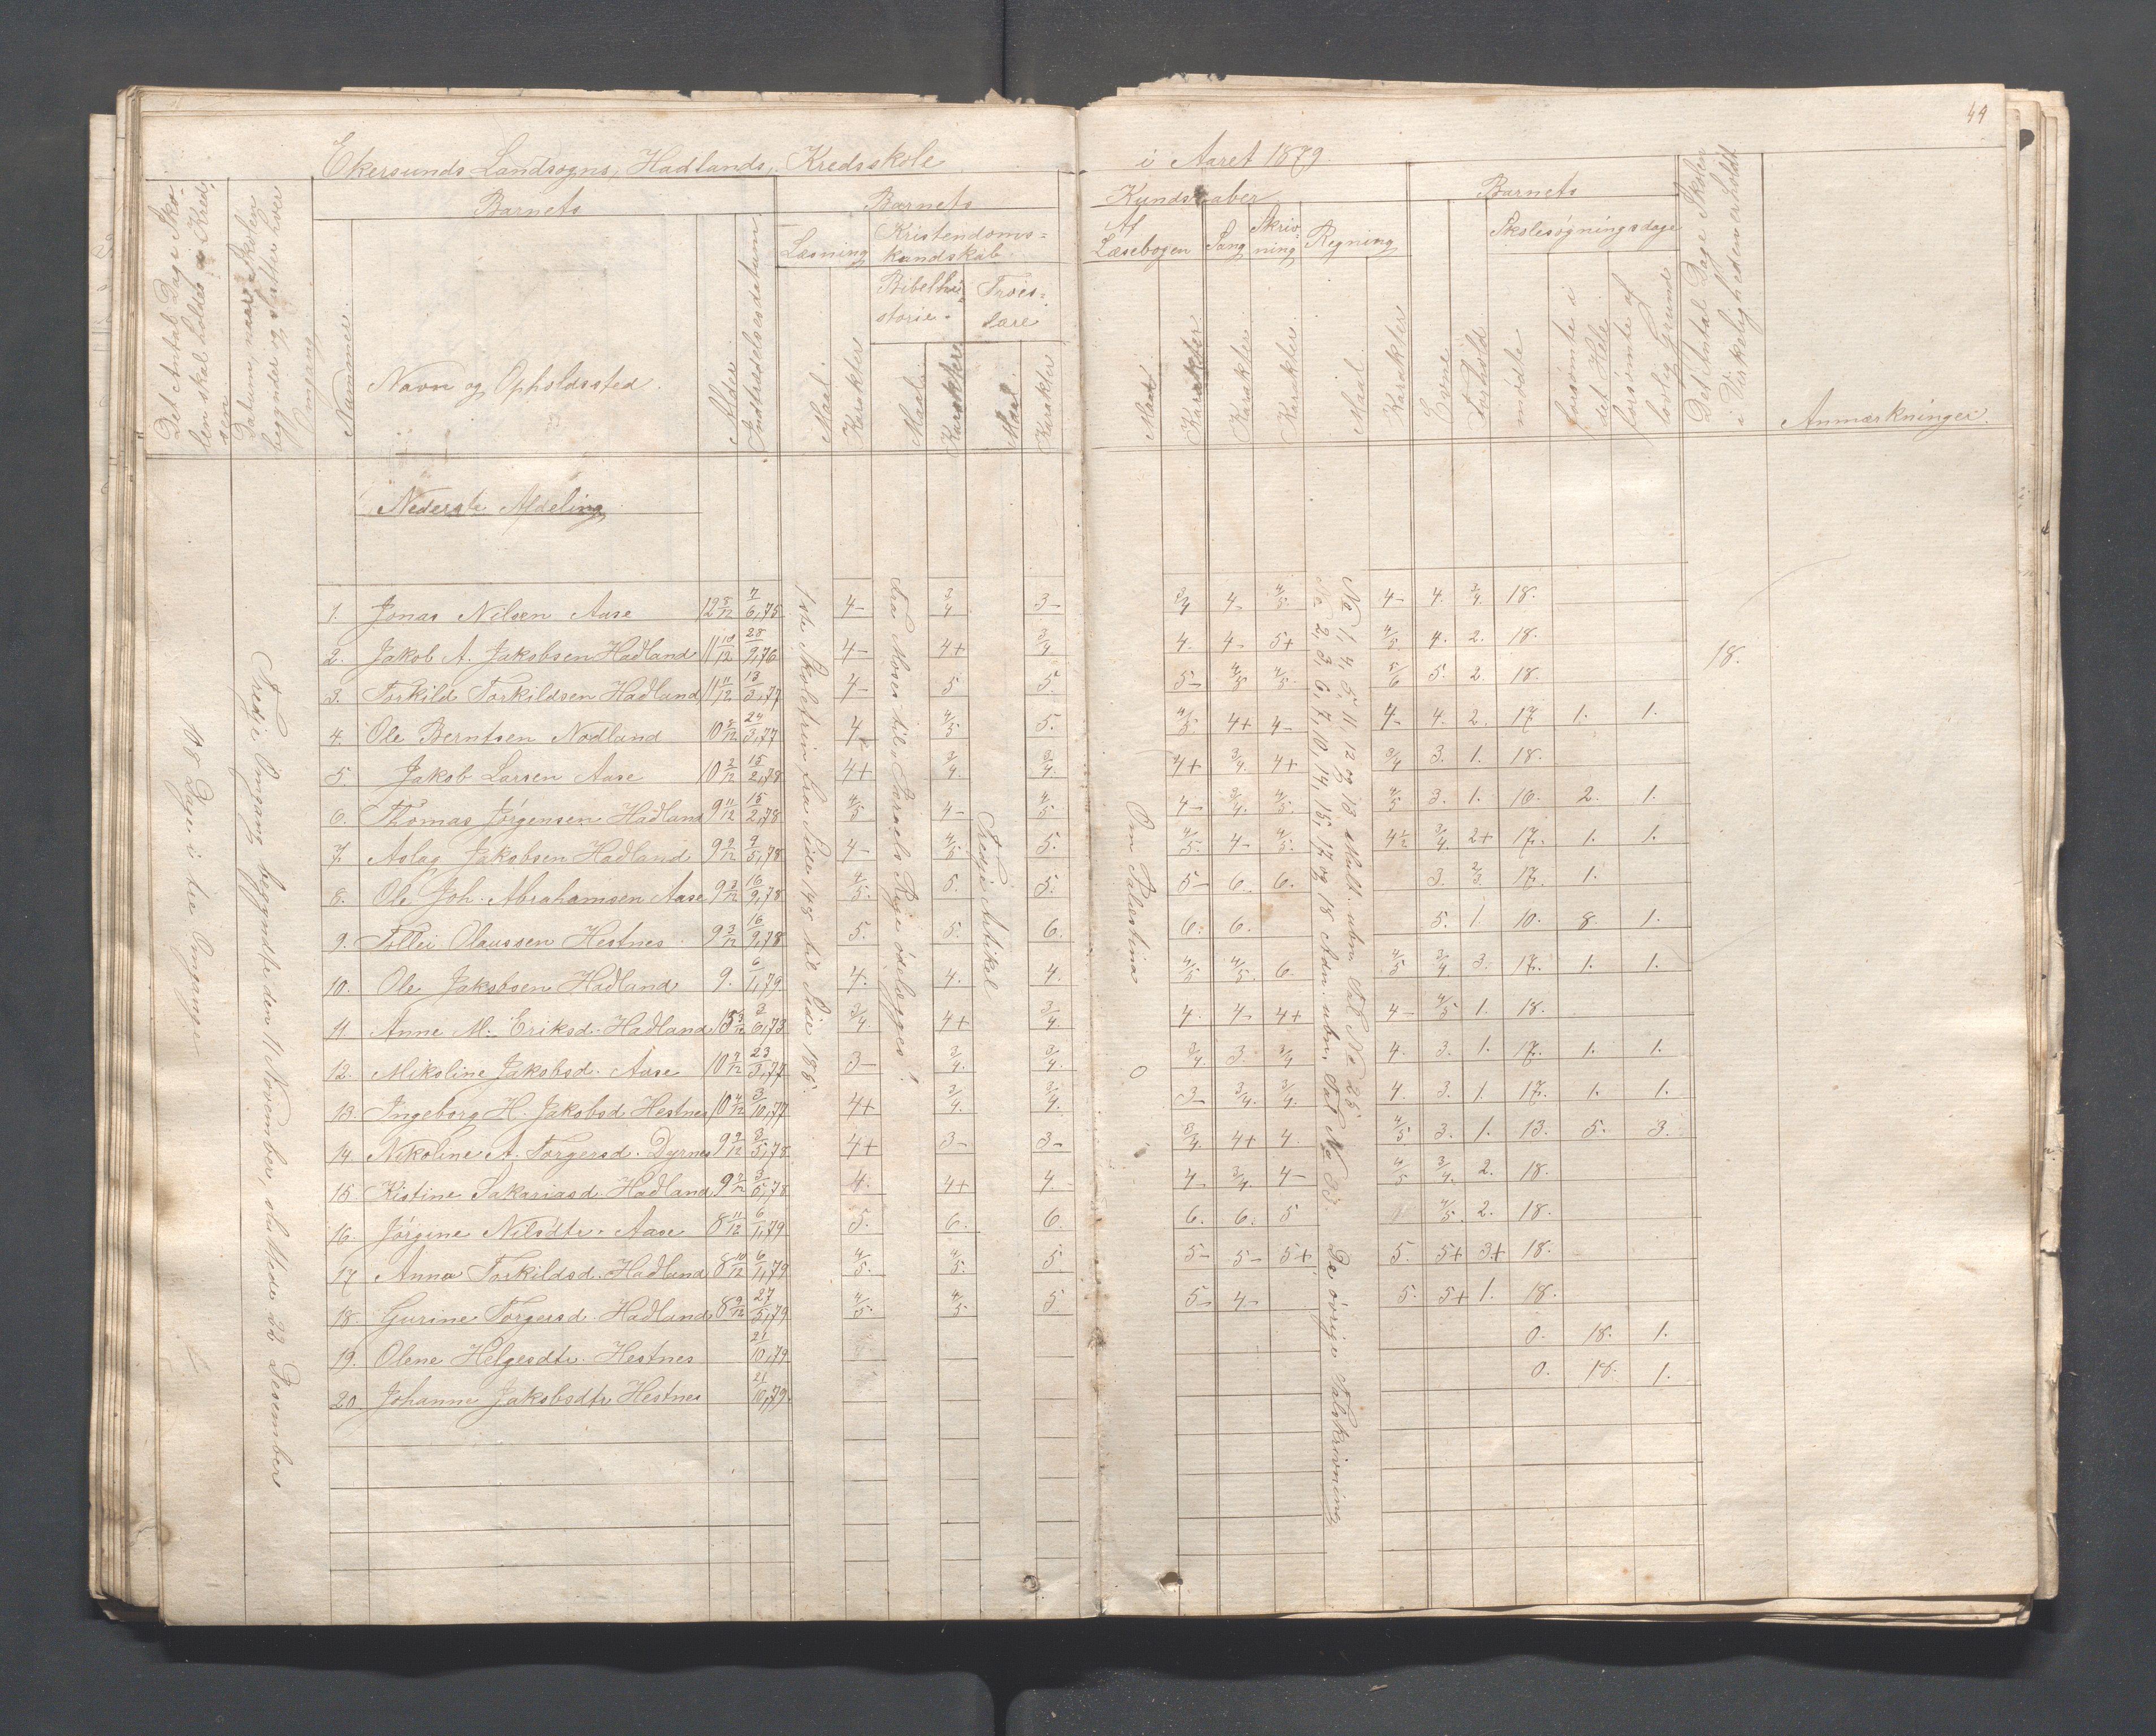 44
Ekersunds Landsogns, Hadlands, Kredsskole
i Aaret 1879.
Det Antal Dage Sko-
len skal holdes i Kred-
sen.
Datum, naar Skolen
begynder og slutter hver
Omgang
Nummer.
Barnets
Navn og Opholdssted.
Alder.
Indtrædelsesdatum.
Barnets
Læsning
Maal.
Karakter
Kristendoms-
kundskab.
Bibelhi-
storie.
Maal.
Karakter
Troes-
lære
Maal.
Karakter
Kundskaber
Af
Læsebogen
Maal
Karakter
Sang
Karakter.
Skriv-
ning
Karakter.
Regning
Maal.
Karakter
Barnets
Evne
Forhold.
Skolesøgningsdage
mødte
forsømte i
det Hele
forsømte af
lovlig Grund
Det Antal Dage Skolen
i Virkeligheden er holdt
Anmærkninger.
108 Dage i tre Omgange
Tredje Omgang begyndte den 11 November, sluttede 22 Desember
Nederste Afdeling
1ste Skoletrin fra Side 148 til Side 186.
Fra Moses til Israels Rige ødelægges.
Tredje Artikel
Om Palæstina
No 1, 4, 5, 11, 12 og 13 Mult. ubn. Tal No 25
No 2, 3, 6, 7, 10, 14, 15, 17 og 18 Adn. ubn. Tal No 23. De øvrige Talskrivning
18.
1. Jonas Nilsen Aase 12 8/12 7/6,75 4- 3/4 3- 3/4 4- 4/5. 4- 4. 3/4. 18.
2. Jakob A. Jakobsen Hadland 11 10/12 28/9,76 4- 4+ 3/4 4. 4- 5+ 4/5 4. 2. 18.
3. Torkild Torkildsen Hadland 11 11/12 13/3,77 4- 5 5. 5- 4/5 4/5. 5/6 5. 2. 18.
4. Ole Berntsen Nodland 10 8/12 24/3,77 4- 4/5 5. 4/5 4+ 4- 4- 4. 2. 17 1. 1.
5. Jakob Larsen Aase 10 2/12 15/2,78 4+ 3/4. 3/4. 4+ 3/4. 4+ 3/4 3. 1. 18.
6. Thomas Jørgensen Hadland 9 11/12 15/2,78 4/5 4- 4/5 4- 3/4. 4/5. 4/5 3. 1. 16. 2. 1.
7. Aslag Jakobsen Hadland 9 9/12 9/5,78 4- 4/5 5. 4/5. 4- 4/5. 4 1/2 3/4. 2+ 17. 1. 1.
8. Ole Joh. Abrahamsen Aase 9 3/12 16/9,78 4/5. 5. 5. 5- 6. 6. 3. 2/3. 17. 1.
9. Tollei Olaussen Hestnes 9 3/12 16/9,78 5. 5. 6. 6. 6. 5. 1. 10. 8. 1.
10. Ole Jakobsen Hadland 9. 6/1,79 4. 4. 4. 4/5 4/5. 6. 4/5 3/4. 3. 17. 1. 1.
11 Anne M. Eriksd. Hadland 13 3/12 3/6,73 3/4. 4+ 3/4 4. 4- 4+ 4- 4/5 1. 18.
12. Mikoline Jakobsd. Aase 10 4/12 23/3,77 3- 3/4. 3/4. 3/4. 3. 3/4 4. 3. 1. 17. 1. 1.
13. Ingeborg H. Jakobsd. Hestnes 10 4/12 3/10,77 4+ 3/4. 3/4. 3- 3/4. 3/4. 4. 3. 1. 17. 1. 1.
14 Nikoline A. Torgersd. Dyrnes 9 9/12 3/5,78 4+ 3- 3- 3/4 4+ 4. 4/5. 3. 1. 13. 5. 3.
15. Kistine Sakariasd. Hadland 9 9/12 3/5,78 4. 4+ 4. 4- 3/4. 4- 4/5 3/4. 2. 18.
16. Jørgine Nilsdtr. Aase 8 11/12 6/1,79 5. 6. 6. 6. 6. 5 4/5. 2. 18.
17 Anna Torkildsd. Hadland 8 10/12 6/1,79 4/5. 4/5. 5. 5- 5- 5+ 5. 5+ 3+ 18.
18. Gurine Torgersd. Hadland 8 9/12 27/5,79 4/5. 4/5 5 5- 4- 5. 5+ 1. 18.
19. Olene Helgesdtr. Hestnes 21/10,79 0. 18. 1.
20. Johanne Jakobsdtr Hestnes 21/10,79. 0. 18. 1.